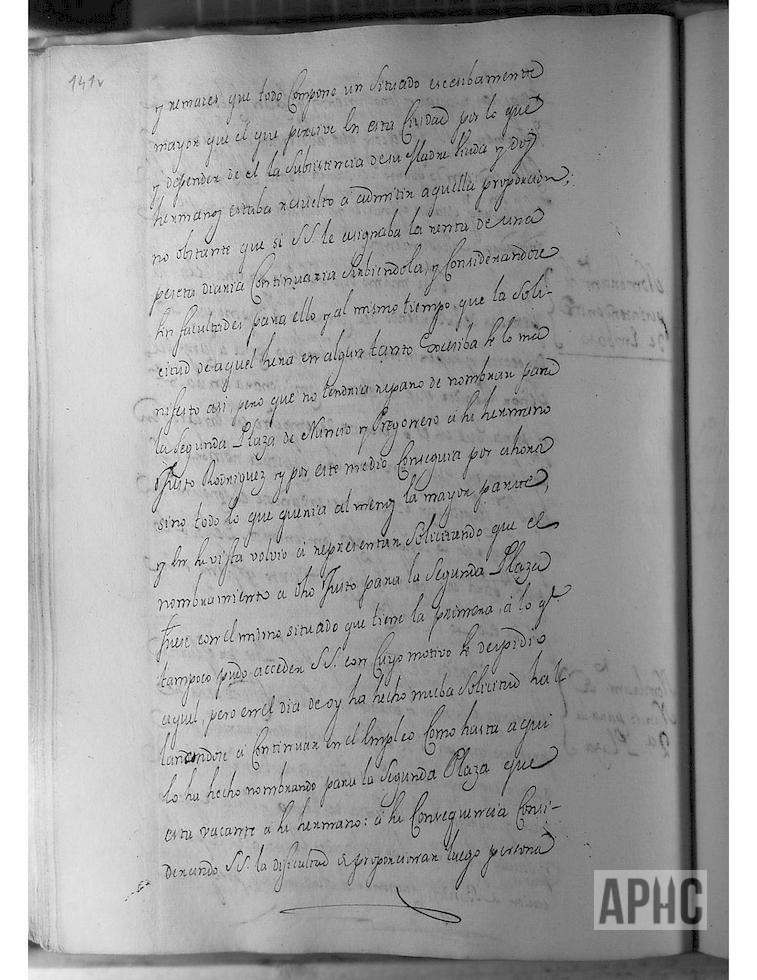 141v
y remares que todo Compone un Situado excesibamente
mayor que el que percive En esta Ciudad por lo que
y depender de el la Subsistencia de su Madre Viuda y dos
hermanos estaba resuelto a admitir aquella proporcion;
no obstante que si S.S. le asignaba la renta de una
peseta diaria Continuaria Sirbiendola, y Considerandose
Sin facultades para ello y al mismo tiempo que la Soli-
citud de aquel hera en algun tanto Excesiba se lo ma
nifesto asi, pero que no tendria reparo de nombrar para
la Segunda Plaza de Nuncio y Pregonero a su hermano
Justo Rodriguez y por este medio Conseguia por ahora
sino todo lo que queria al menos la mayor parte,
y En su vista volvio a representar, Solicitando que el
nombramiento a dho Justo para la Segunda Plaza
fuese con el mismo situado que tiene la primera, á lo qe
tampoco pudo acceder S.S. con Cuyo motivo se despidio
aquel, pero en el dia de oy ha hecho nueba Solicitud hall
lanandose a Continuar en el Empleo Como hasta aqui
lo ha hecho nombrando para la Segunda Plaza que
esta vacante a su hermano: a su Consequencia Consi-
derando S.S. la dificultad de proporcionar luego persona
APHC